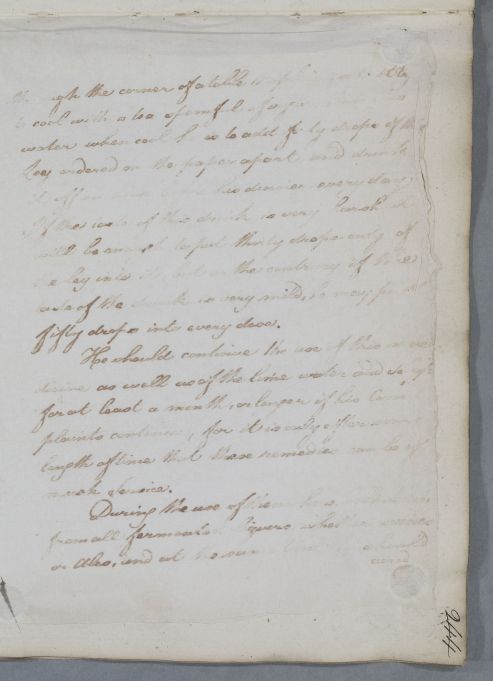 the corner of a table
to cool with a tea spoonful of
water when cool he is to add fifty drops of the
Ley ordered on the paper apart and drink
it off an hour before his dinner every day;
If the taste of this drink is very harsh it
will be enough to put thirty drops only of
the ley into it, but on the contrary if the
taste of the drink is very mild, he may put
fifty drops into every dose.
He should continue the use of this me
dicine as well as of the lime water and
for at least a month, or longer if his Com
plaints continue, for it is only after some
length of time that these remedies can be of
much Service.
During the use of them
from all fermented liquors
or Ales, and at the same time he should
avoid
244